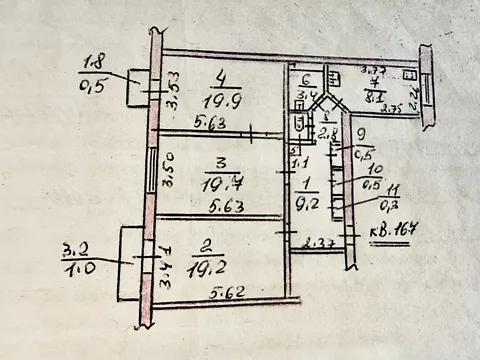 1.8
0,5
3.53
4
19.9
5.63
6
3.4
3.77
7
8.1
2.75
2.22
8
2.8
9
0,5
3.50
3
19.7
5.63
5
1.1
1
9.2
10
0,5
11
0,3
кв. 167
3.2
1.0
3.41
2
19.2
5.62
2.37